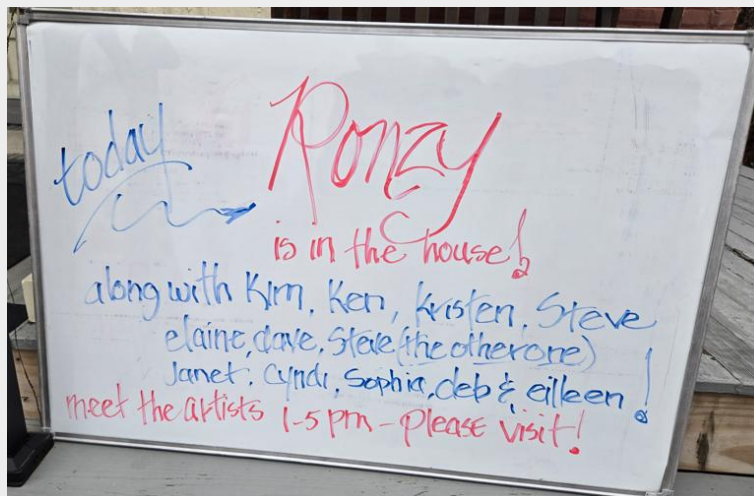 today
Ronzy
is in the house!
along with Kim, Ken, Kristen, Steve
elaine, dave, Steve (the other one)
Janet, Cyndi, Sophia, deb & eilleen!
meet the artists 1-5 pm - please visit!